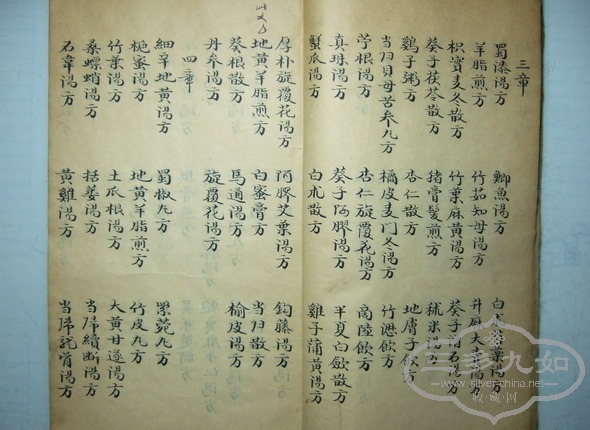 三章
蜀漆湯方 鯽魚湯方 白 湯方
羊脂煎方 竹茹知母湯方 升麻大 湯方
枳實麦冬散方 竹葉麻黃湯方 葵子滑石湯方
葵子茯苓散方 猪膏髮煎方 秫米湯方
鷄子粥方 杏仁散方 地膚子飲方
当归貝母苦参丸方 橘皮麦門冬湯方 竹瀝飲方
苧根湯方 杏仁旋覆花湯方 商陸飲方
真珠湯方 葵子阿膠湯方 半夏白歛散方
蟹爪湯方 白朮散方 雞子蒲黃湯方
厚朴旋覆花湯方 阿膠艾葉湯方 鈎藤湯方
地黄羊脂煎方 白蜜膏方 当归散方
葵根散方 馬通湯方 榆皮湯方
丹参湯方 旋覆花湯方
四章
細辛地黃湯方 蜀椒丸方 紫菀丸方
梔蜜湯方 地黃羊脂煎方 竹皮丸方
竹葉湯方 土瓜根湯方 大黄甘遂湯方
桑螺蛸湯方 括姜湯方 当歸續断湯方
石韋湯方 黃雞湯方 当歸 湯方
三多九如
www.silver-china.net
收藏网